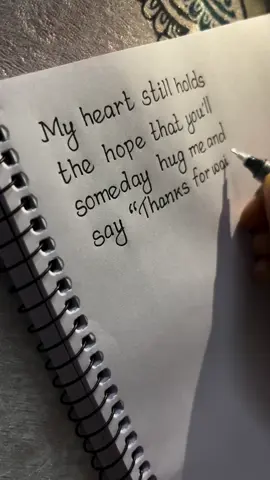 My heart still holds
the hope that you'll
someday hug me and
say "Thanks for wai